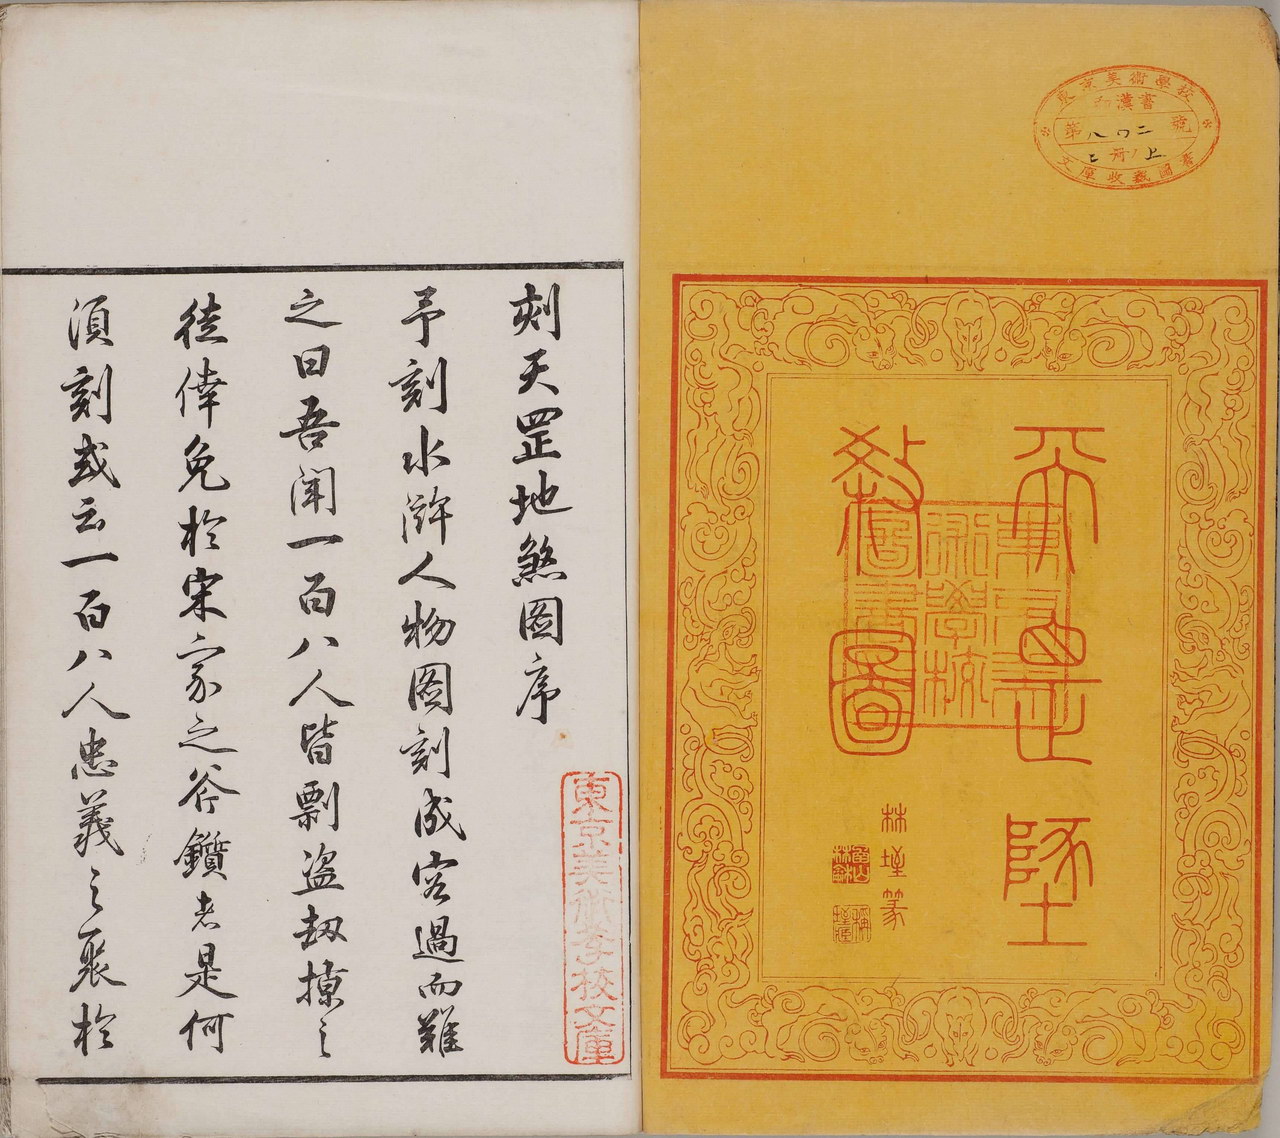 東京美術學校
漢書
第八〇二號
二冊ノ上
文庫收藏圖書
天罡墬
煞圖
林墐篆
東京美術學校圖書
東京美術学校文庫
刻天罡地煞图序
予刻水滸人物图刻成客過而難
之曰吾闻一百八人皆剽盗劫掠之
徒倖免於宋家之斧鑕者是何
須刻或云一百八人忠義之聚於